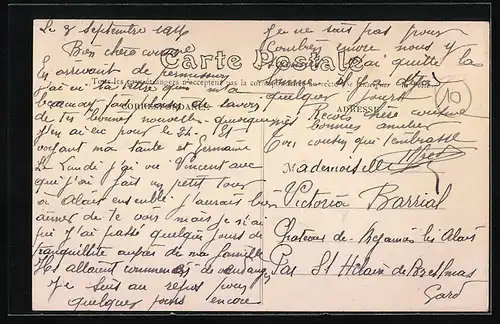 Le 8 septembre 1916
Bien chère cousine
En arrivant de permission
j'ai eu ta lettre qui m'a
beaucoup fait de savoir
de tes bonnes nouvelles
j'en ai eu pour le 24. Et
voyant ma tante et Germaine
Le Lundi j'ai vu Vincent avec
qui j'ai fait un petit tour
à Alais ensemble j'aurais bien
aimer de te voir mais je n'ai
que j'ai passé quelques jours de
tranquillité auprès de ma famille
Ils allaient commencés de vendanger
Je suis au repos pour
quelques jours encore
Je ne sais pas pour
combien encore nous y
j'ai quitté la
Somme et
quelques jours
Reçois chère cousine
bonnes amitiés
Ton cousin qui t'embrasse
Carte Postale
Tous les pays étrangers n'acceptent pas la correspondance
CORRESPONDANCE
ADRESSE
10
Mademoiselle
Victoria Barrial
Chateau de les Alais
Par St Hilaire de Brethmas
Gard